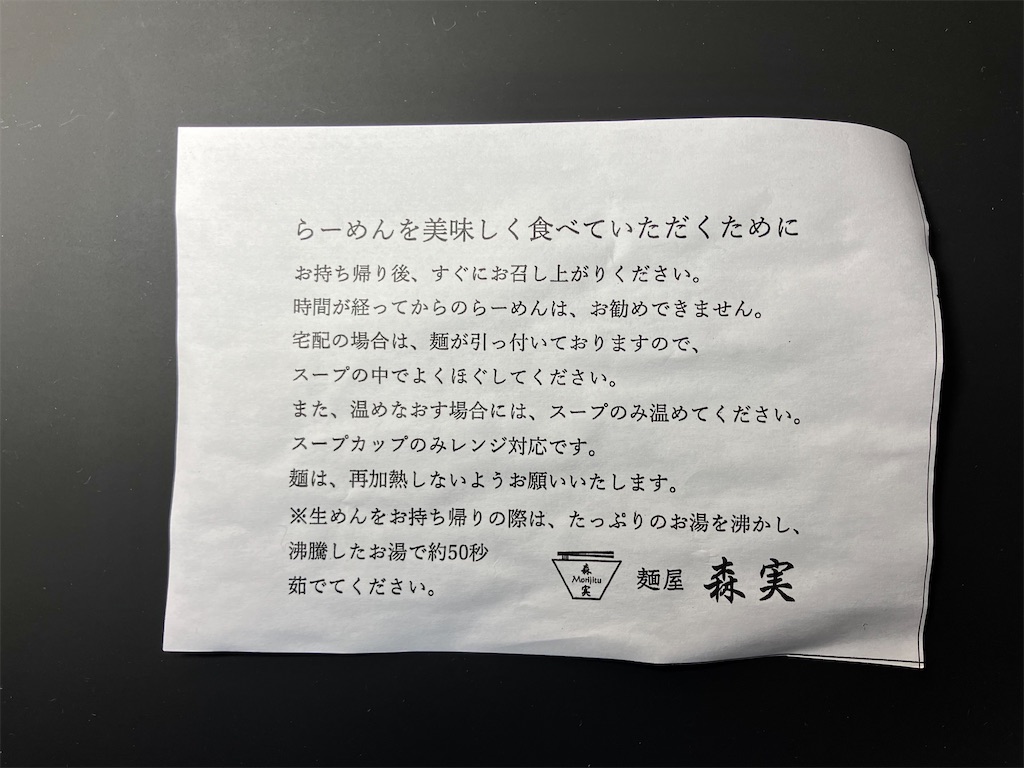 らーめんを美味しく食べていただくために
お持ち帰り後、すぐにお召し上がりください。
時間が経ってからのらーめんは、お勧めできません。
宅配の場合は、麺が引っ付いておりますので、
スープの中でよくほぐしてください。
また、温めなおす場合には、スープのみ温めてください。
スープカップのみレンジ対応です。
麺は、再加熱しないようお願いいたします。
※生めんをお持ち帰りの際は、たっぷりのお湯を沸かし、
沸騰したお湯で約50秒
茹でてください。
森
Morijitu
実
麺屋 森実